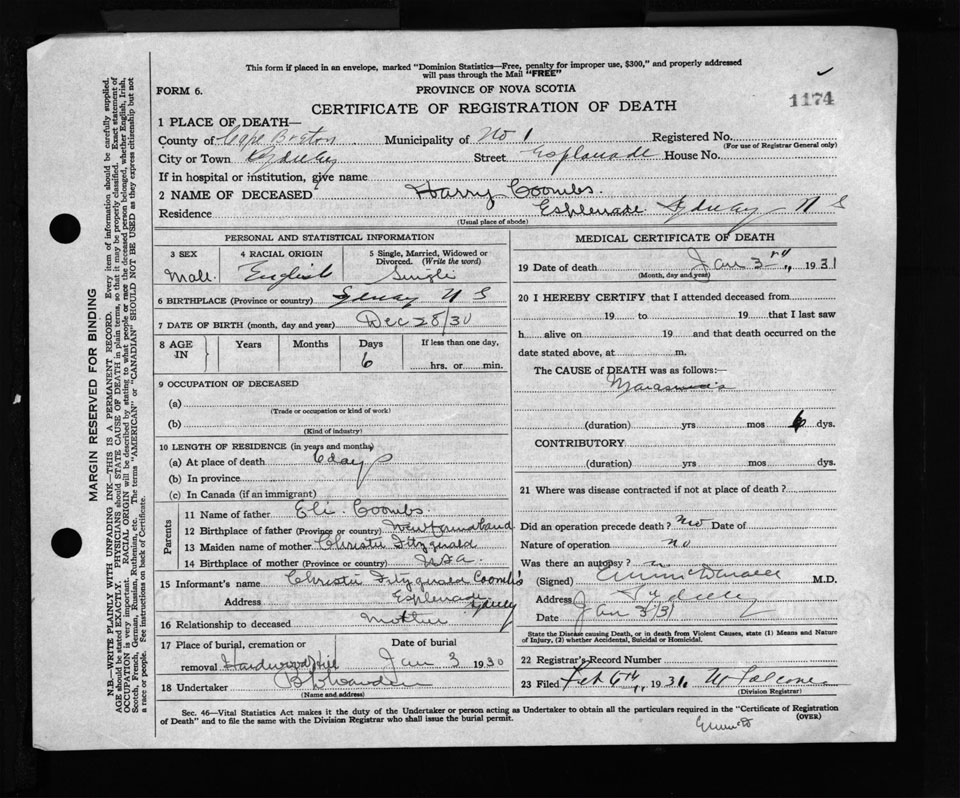 This form if placed in an envelope, marked "Dominion Statistics—Free, penalty for improper use, $300," and properly addressed
will pass through the Mail "FREE"
FORM 6.
PROVINCE OF NOVA SCOTIA
1174
CERTIFICATE OF REGISTRATION OF DEATH
1 PLACE OF DEATH—
County of Cape Breton Municipality of No 1 Registered No.
(For use of Registrar General only)
City or Town Sydney Street Esplanade House No.
If in hospital or institution, give name
2 NAME OF DECEASED Harry Coombs.
Residence Esplenade Sydney N S
(Usual place of abode)
PERSONAL AND STATISTICAL INFORMATION
3 SEX 4 RACIAL ORIGIN 5 Single, Married, Widowed or
Divorced. (Write the word)
Male English Single
6 BIRTHPLACE (Province or country) Sydney N S
7 DATE OF BIRTH (month, day and year) Dec 28/30
8 AGE IN Years Months Days If less than one day,
6 hrs. or min.
9 OCCUPATION OF DECEASED
(a)
(Trade or occupation or kind of work)
(b)
(Kind of industry)
10 LENGTH OF RESIDENCE (in years and months)
(a) At place of death 6 days
(b) In province
(c) In Canada (if an immigrant)
Parents
11 Name of father Eli Coombs.
12 Birthplace of father (Province or country) Newfoundland
13 Maiden name of mother Christie Fitzgerald
14 Birthplace of mother (Province or country)
15 Informant's name Christie Fitzgerald Coombs
Address Esplenade Sydney
16 Relationship to deceased Mother
17 Place of burial, cremation or Date of burial
removal Hardwood Hill Jan 3 1930
18 Undertaker
(Name and address)
MEDICAL CERTIFICATE OF DEATH
19 Date of death Jan 3rd 1931
(Month, day and year)
20 I HEREBY CERTIFY that I attended deceased from
19 to 19 that I last saw
h alive on 19 and that death occurred on the
date stated above, at m.
The CAUSE of DEATH was as follows:—
Marasmus
(duration) yrs mos 6 dys.
CONTRIBUTORY
(duration) yrs mos dys.
21 Where was disease contracted if not at place of death?
Did an operation precede death? No Date of
Nature of operation no
Was there an autopsy?
(Signed) M.D.
Address Sydney
Date Jan 3/31
State the Disease causing Death, or in death from Violent Causes, state (1) Means and Nature
of Injury, (2) whether Accidental, Suicidal or Homicidal.
22 Registrar's Record Number
23 Filed Feb 6th 1931
(Division Registrar)
Sec. 46—Vital Statistics Act makes it the duty of the Undertaker or person acting as Undertaker to obtain all the particulars required in the "Certificate of Registration
of Death" and to file the same with the Division Registrar who shall issue the burial permit. (OVER)
MARGIN RESERVED FOR BINDING
N.B.—WRITE PLAINLY WITH UNFADING INK—THIS IS A PERMANENT RECORD. Every item of information should be carefully supplied.
AGE should be stated EXACTLY. PHYSICIANS should STATE CAUSE OF DEATH in plain terms, so that it may be properly classified. Exact statement of
OCCUPATION is very important. RACIAL ORIGIN will be described by stating to what people or race the deceased person belonged, whether English, Irish,
Scotch, French, German, Russian, Ruthenian, etc. The terms "AMERICAN" or "CANADIAN" SHOULD NOT BE USED as they express citizenship but not
a race or people. See instructions on back of Certificate.